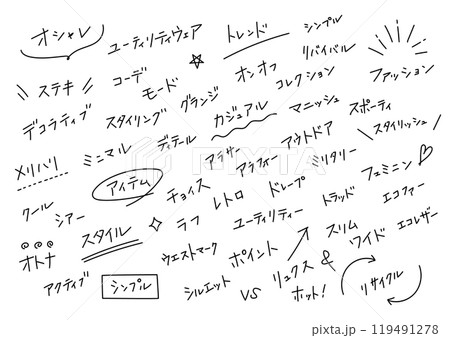 オシャレ
ユーティリティウェア
トレンド
シンプル
リバイバル
ファッション
ステキ
コーデ
モード
オンオフ
コレクション
デコラティブ
スタイリング
グランジ
カジュアル
マニッシュ
スポーティ
スタイリッシュ
メリハリ
ミニマル
ディテール
アラサー
アラフィー
アウトドア
ミリタリー
フェミニン
アイテム
チョイス
レトロ
ドレープ
トラッド
エコファー
クール
シアー
スタイル
ラフ
ユーティリティー
スリム
ワイド
エコレザー
オトナ
ウエストマーク
ポイント
アクティブ
シンプル
シルエット
VS
リュクス &
ホット!
リサイクル
PIXTA
119491278